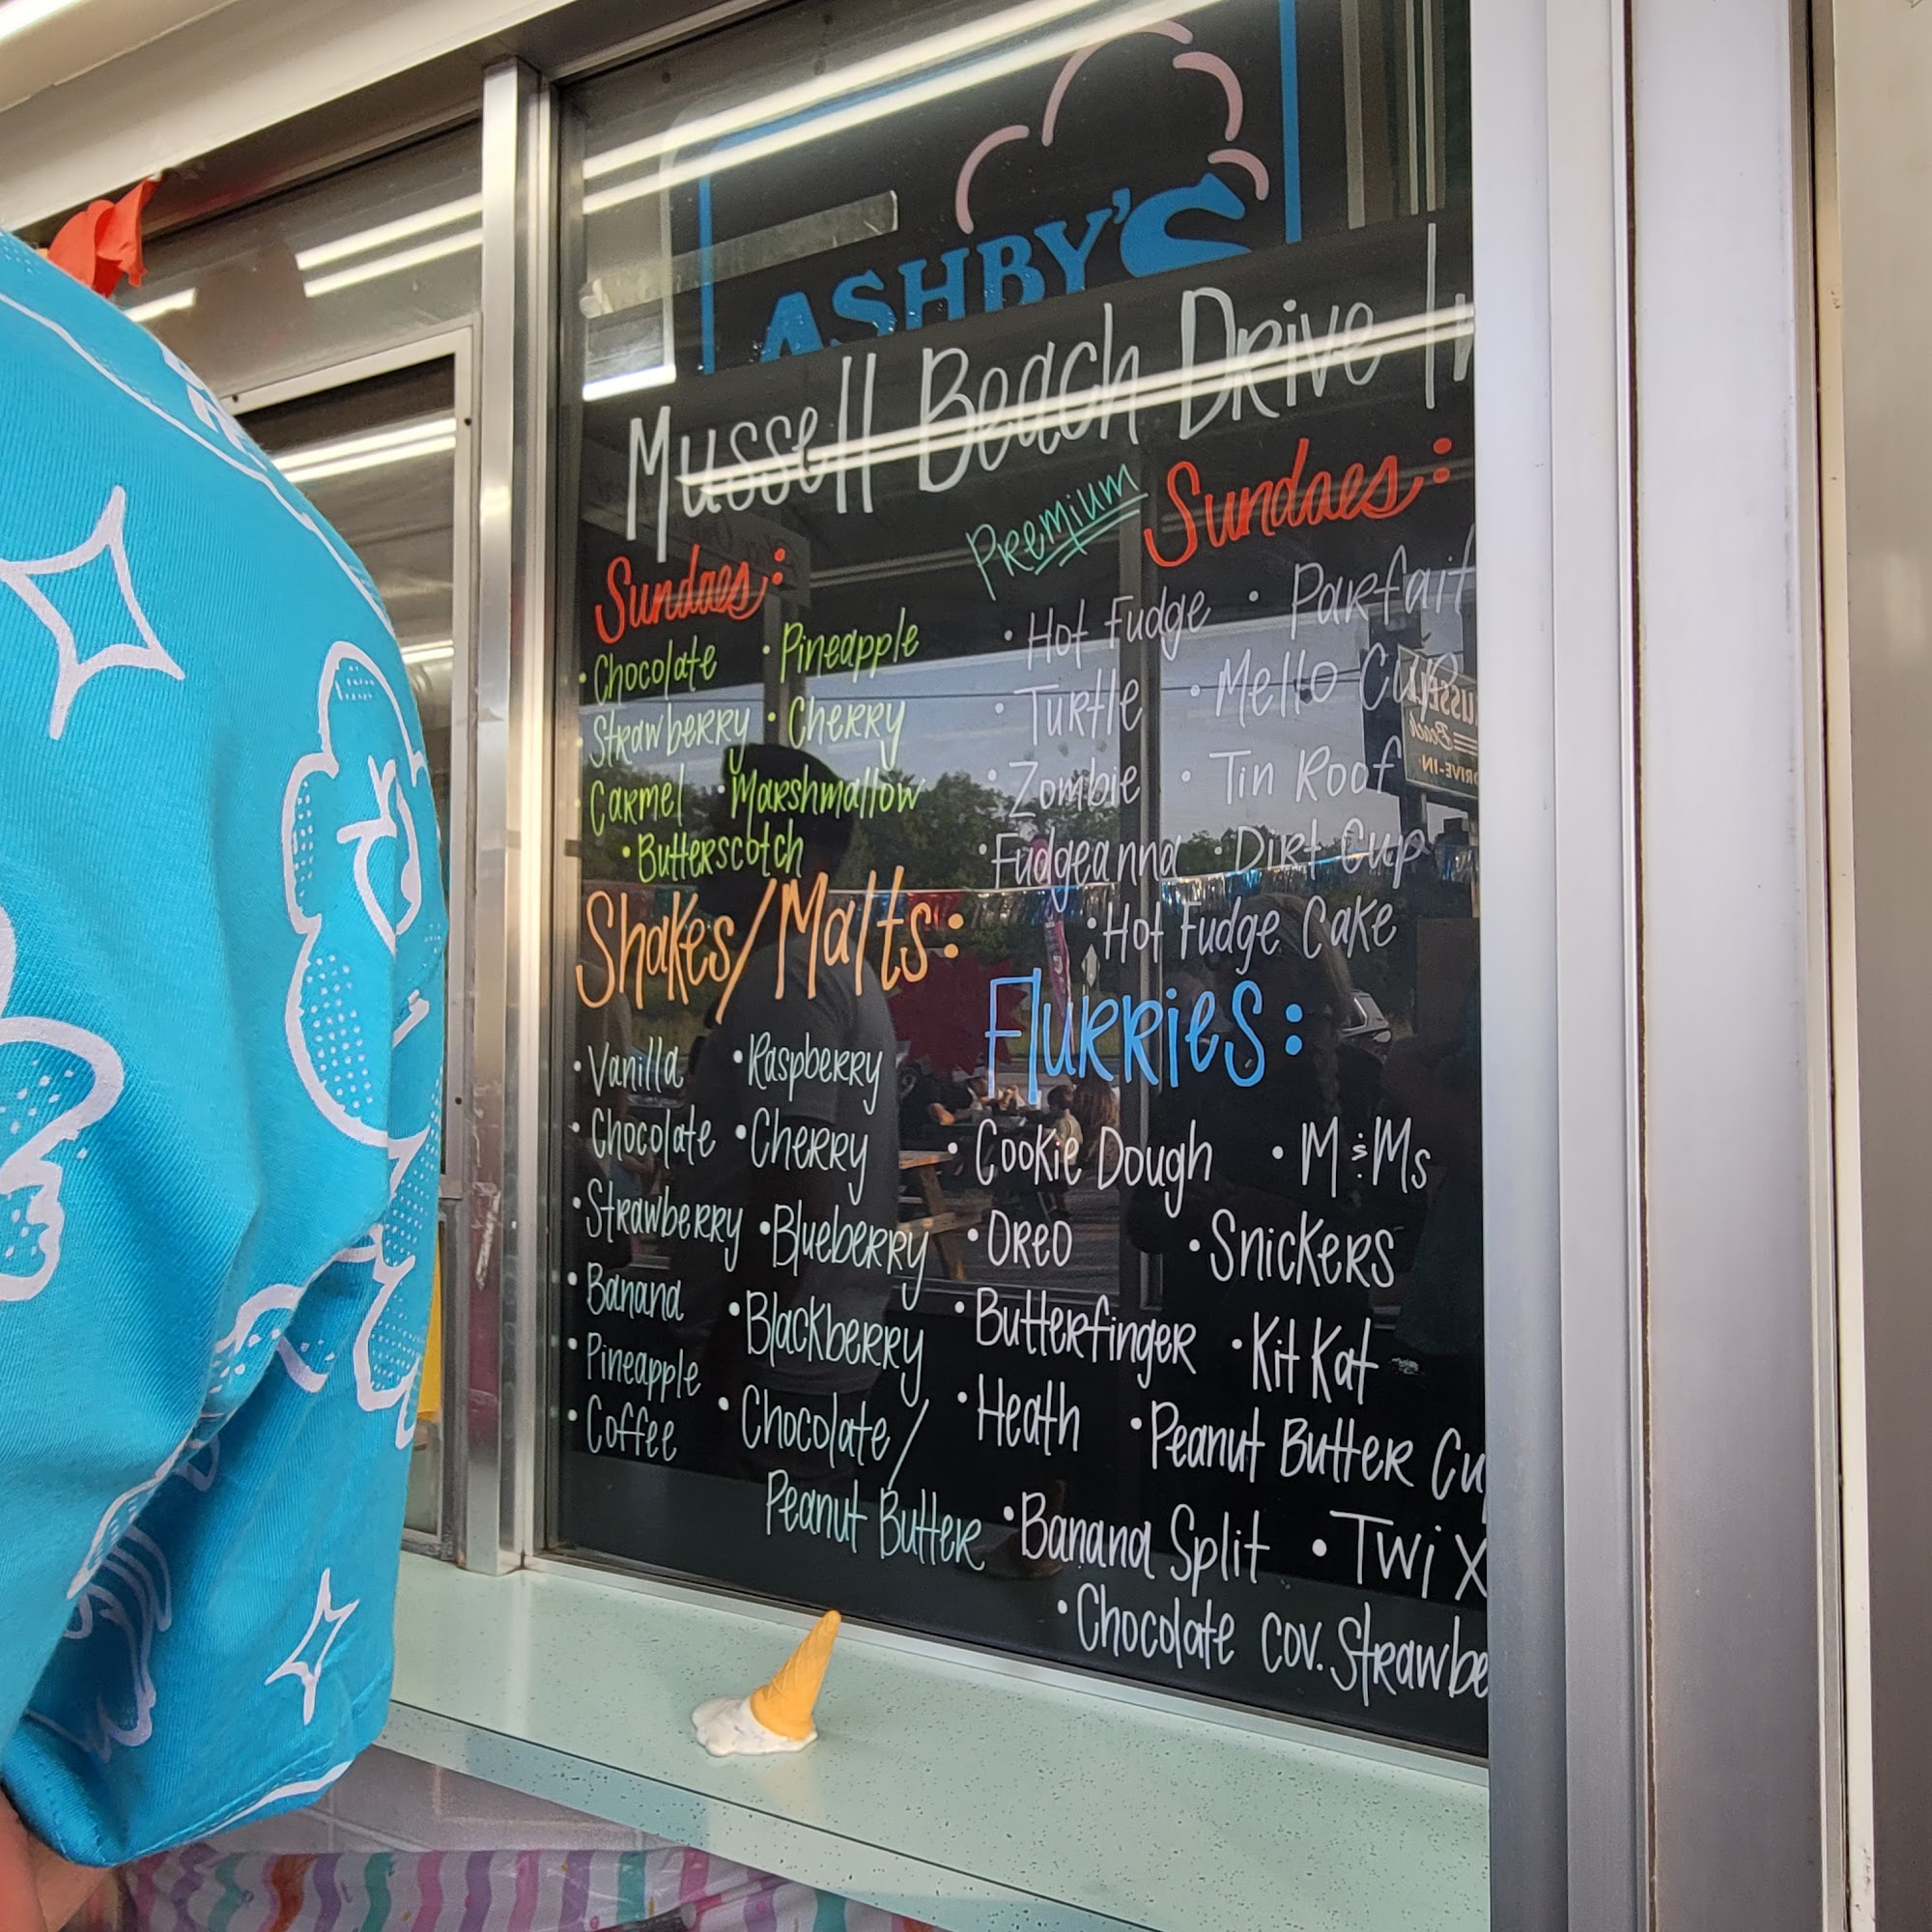 ASHBY'S
Mussell Beach Drive In
Sundaes:
• Chocolate • Pineapple
• Strawberry • Cherry
• Carmel • Marshmallow
• Butterscotch
Premium Sundaes:
• Hot Fudge • Parfait
• Turtle • Mello Cup
• Zombie • Tin Roof
• Fudgeanna • Dirt Cup
• Hot Fudge Cake
Shakes/Malts:
• Vanilla • Raspberry
• Chocolate • Cherry
• Strawberry • Blueberry
• Banana • Blackberry
• Pineapple
• Coffee • Chocolate/
Peanut Butter
Flurries:
• Cookie Dough • M&Ms
• Oreo • Snickers
• Butterfinger • Kit Kat
• Heath • Peanut Butter Cup
• Banana Split • Twix
• Chocolate cov. Strawbe